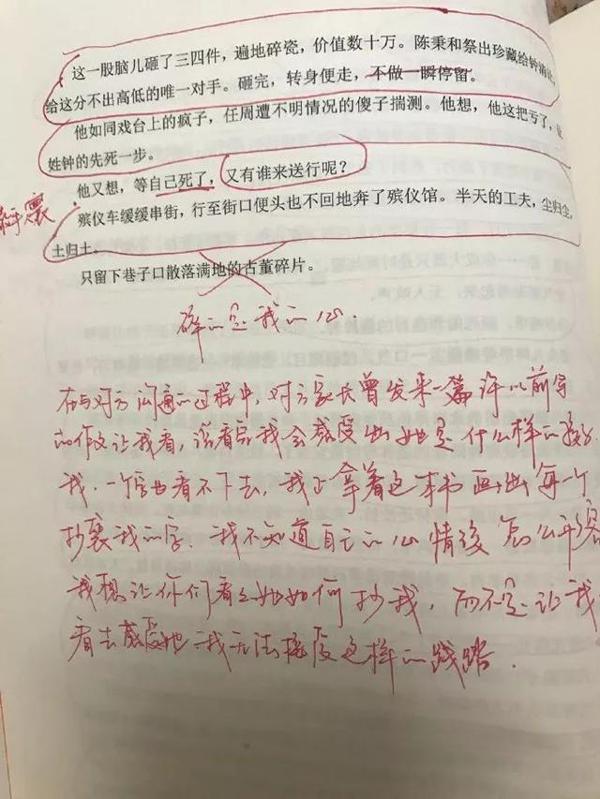 这一股脑儿砸了三四件，遍地碎瓷，价值数十万。陈秉和祭出珍藏给钟
给这分不出高低的唯一对手。砸完，转身便走，不做一瞬停留。
他如同戏台上的疯子，任周遭不明情况的傻子揣测。他想，他这把亏了，
姓钟的先死一步。
他又想，等自己死了，又有谁来送行呢？
殡仪车缓缓串街，行至街口便头也不回地奔了殡仪馆。半天的工夫，尘归尘，
土归土。
只留下巷子口散落满地的古董碎片。
碎的是我的心.
在与对方沟通的过程中，对方家长曾发来一篇许以前写
的作文让我看，说看完我会感受出她是什么样的孩子
我，一个字也看不下去，我正拿着这本书画出每一个
抄袭我的字，我不知道自己的心情该怎么平
我想让你们看看她如何抄我，而不是让我
看去感受她，我无法接受这样的践踏.